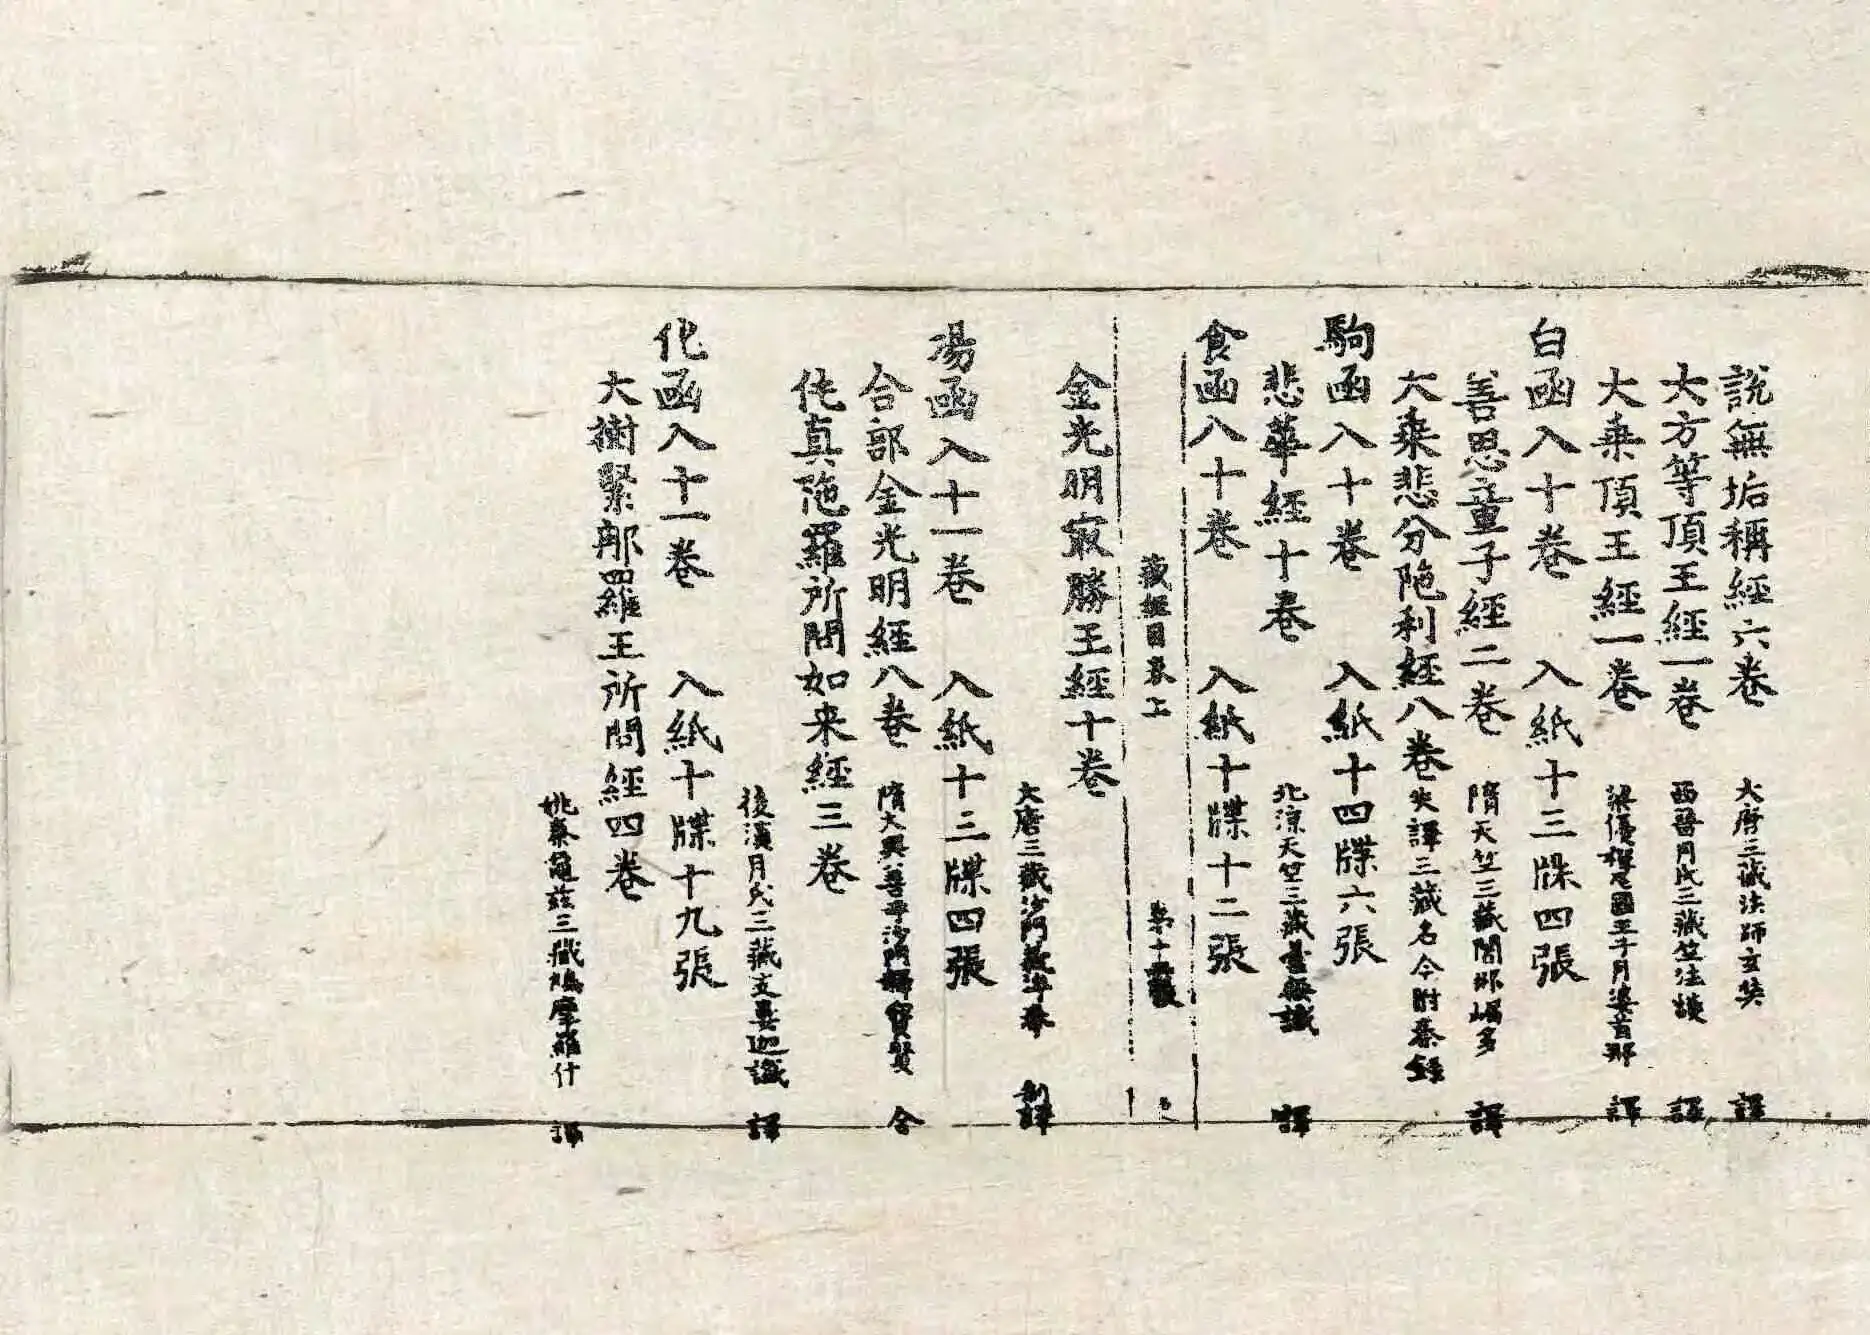 說無垢稱經六卷 大唐三藏法師玄奘 譯
大方等頂王經一卷 西晉月氏三藏竺法護 譯
大乗頂王經一卷 梁優禪尼國王子月婆首那 譯
白函入十卷 入紙十三牒四張
善思童子經二卷 隋天竺三藏闍那崛多 譯
大乗悲分陁利經八卷 失譯三藏名今附秦錄
駒函入十卷 入紙十四牒六張
悲華經十卷 北涼天竺三藏曇無讖 譯
食函入十卷 入紙十牒十二張
藏經目录上 第十張
金光明㝡勝王經十卷
大唐三藏沙門義淨奉 制譯
場函入十一卷 入紙十三牒四張
合部金光明經八卷 隋大興善寺沙門釋寶貴 合
伅真陁羅所問如来經三卷
後漢月氏三藏支婁迦讖 譯
化函入十一卷 入紙十牒十九張
大樹緊那羅王所問經四卷
姚秦龜茲三藏鳩摩羅什 譯